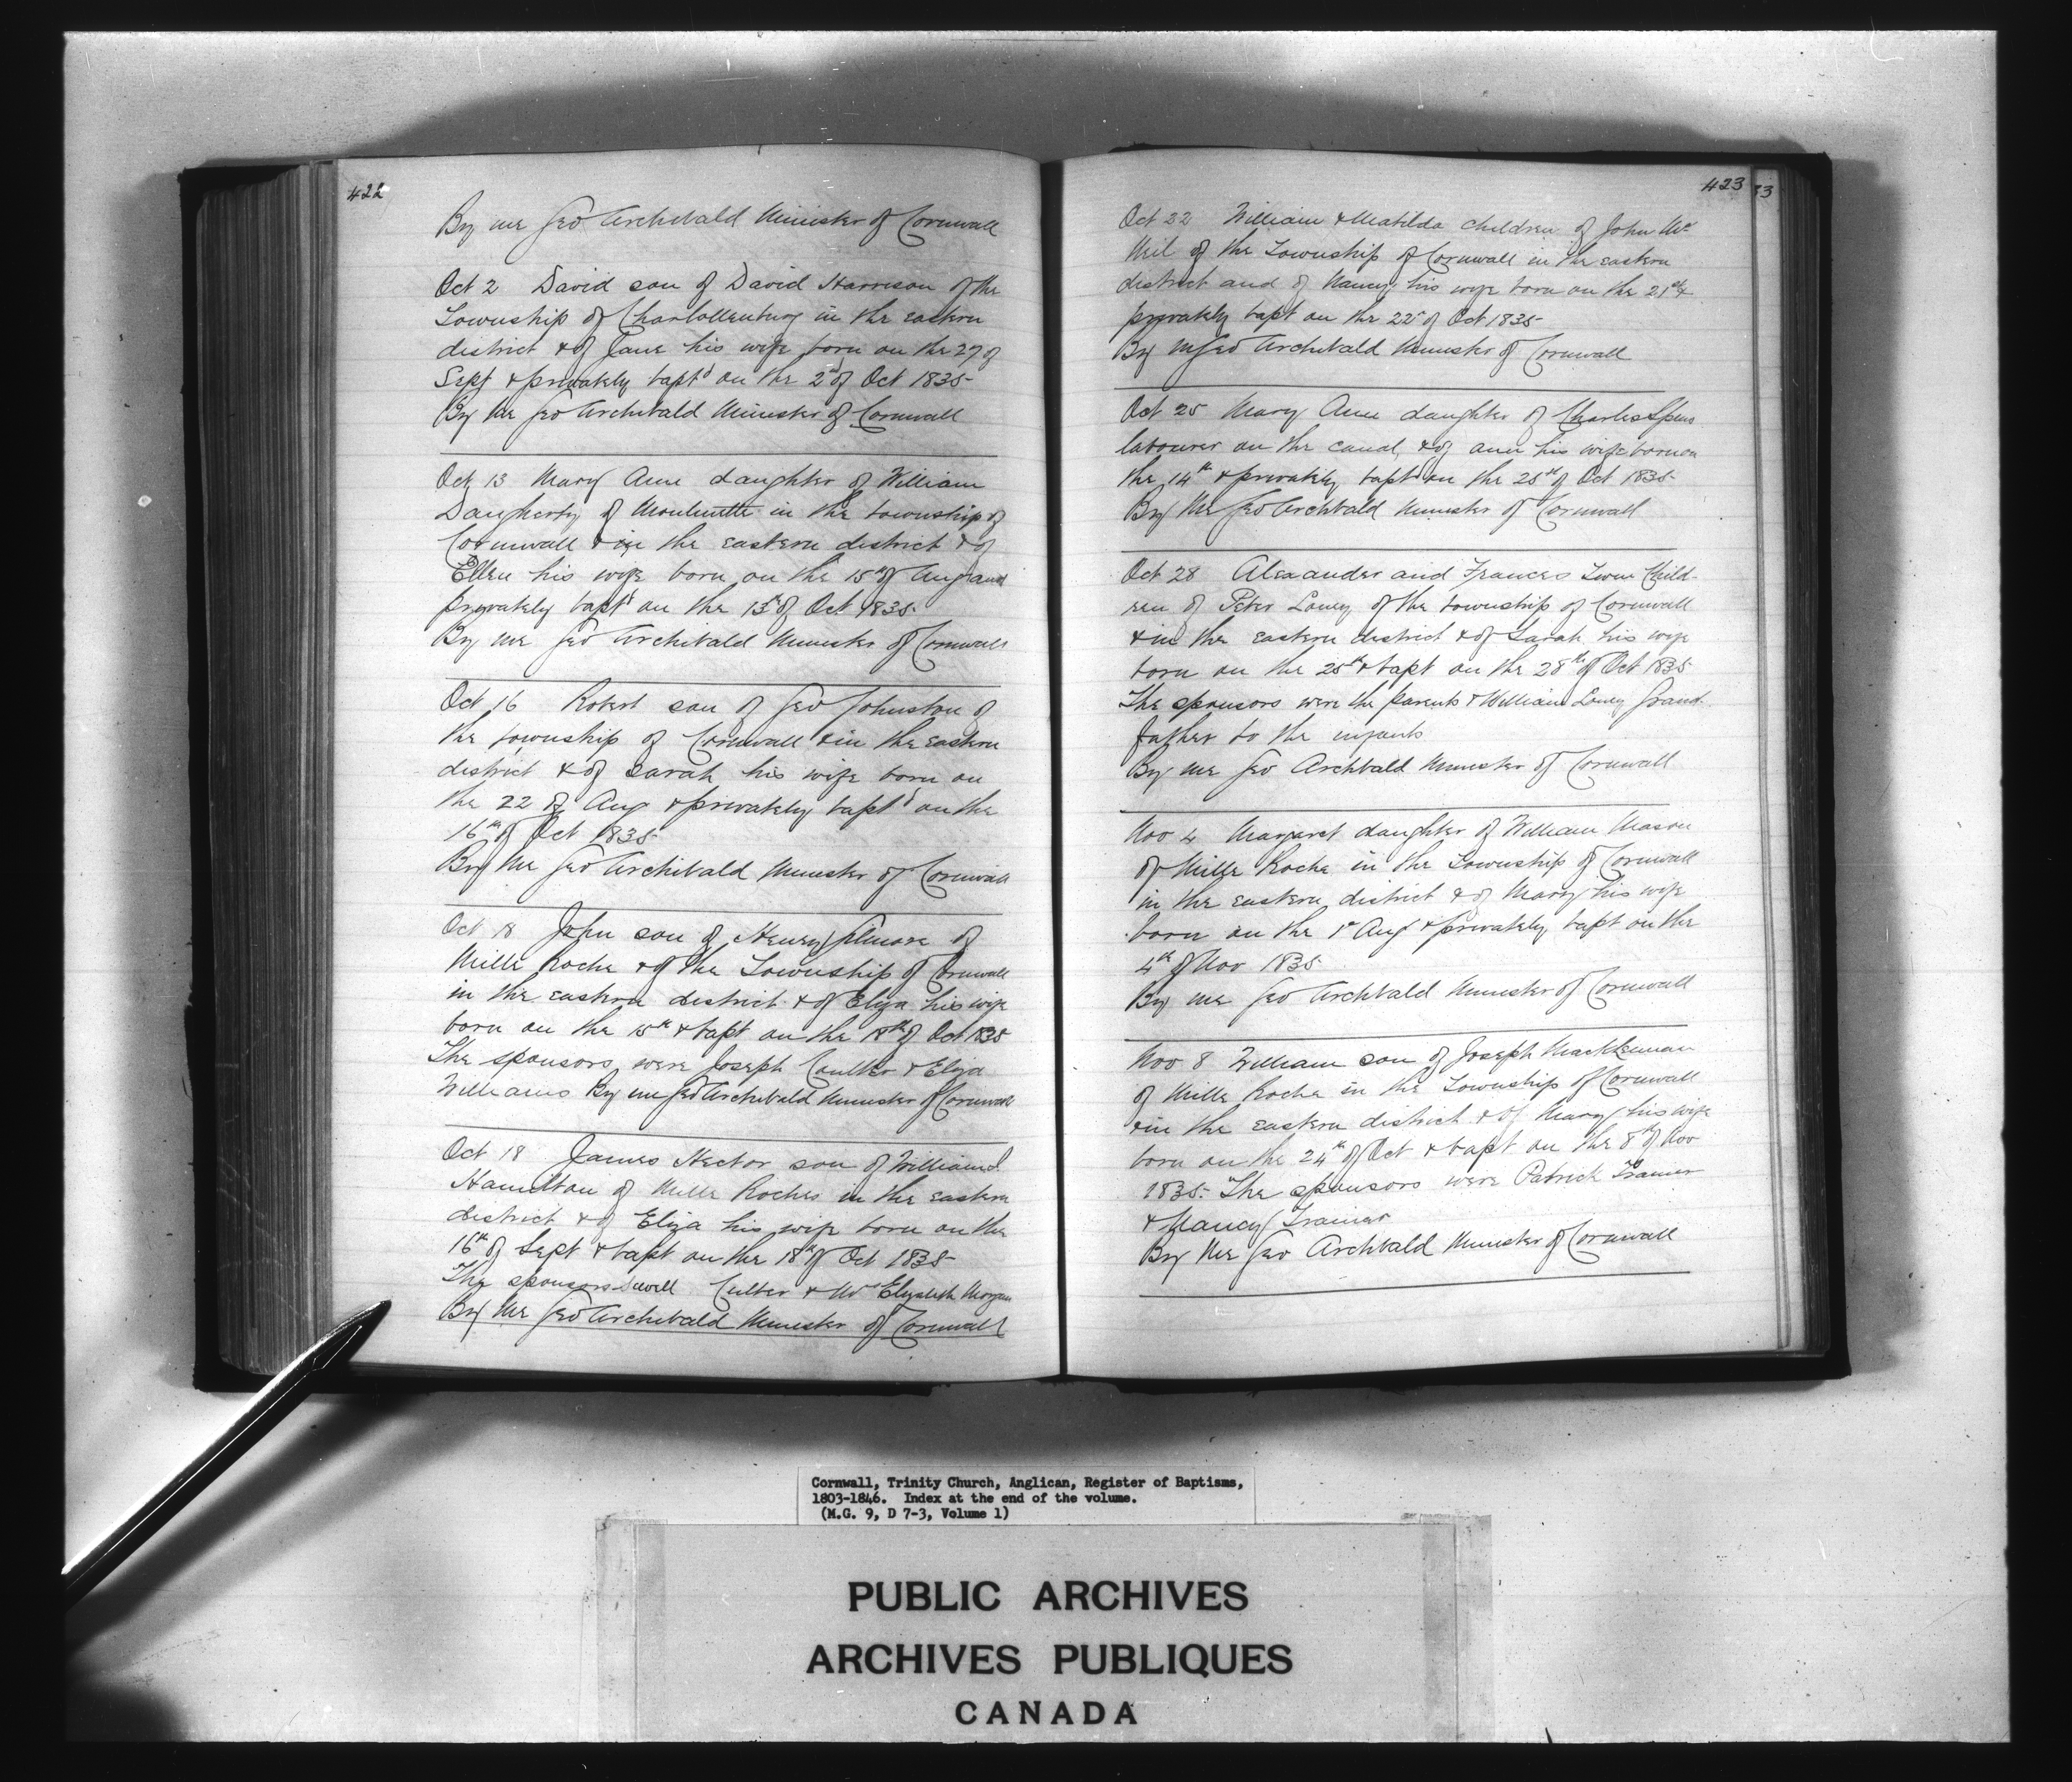 422
By me Geo Archibald Minister of Cornwall
Oct 2 David son of David Harrison of the
Township of Charlottenburg in the eastern
district & of Jane his wife born on the 27 of
Sept & privately bapt'd on the 2d of Oct 1835
By Me Geo Archibald Minister of Cornwall
Oct 13 Mary Ann daughter of William
Daugherty of Moulinette in the township of
Cornwall & in the eastern district & of
Ellen his wife born on the 15th of Aug and
privately bapt'd on the 13th of Oct 1835
By me Geo Archibald Minister of Cornwall
Oct 16 Robert son of Geo Johnston of
the township of Cornwall & in the eastern
district & of Sarah his wife born on
the 22 of Aug & privately bapt'd on the
16th of Oct 1835
By Me Geo Archibald Minister of Cornwall
Oct 18 John son of Henry of
Mille Roche & of the Township of Cornwall
in the eastern district & of Eliza his wife
born on the 15th & bapt on the 18th of Oct 1835
The sponsors were Joseph Coulter & Eliza
Williams By me Geo Archibald Minister of Cornwall
Oct 18 James Hector son of William
Hamilton of Mille Roches in the eastern
district & of Eliza his wife born on the
16th of Sept & bapt on the 18th of Oct 1835
The sponsors Culter & Elizabeth Morgan
By Me Geo Archibald Minister of Cornwall
423
33
Oct 22 William & Matilda children of John Mc
Neil of the Township of Cornwall in the eastern
district and of Nancy his wife born on the 21st &
privately bapt on the 22d of Oct 1835
By m Geo Archibald Minister of Cornwall
Oct 25 Mary Ann daughter of Charles
labourer on the canal, & of ann his wife born on
the 14th & privately bapt'd on the 25th of Oct 1835
By Me Geo Archbald Minister of Cornwall
Oct 28 Alexander and Frances Twin Child-
ren of Peter Loney of the township of Cornwall
& in the eastern district & of Sarah his wife
born on the 25th & bapt on the 28th of Oct 1835
The sponsors were the parents & William Loney Grand
father to the infants
By me Geo Archbald Minister of Cornwall
Nov 4 Margaret daughter of William Mason
of Mille Roche in the Township of Cornwall
in the eastern district & of Mary his wife
born on the 1st Aug & privately bapt on the
4th of Nov 1835
By me Geo Archbald Minister of Cornwall
Nov 8 William son of Joseph
of Mille Roche in the Township of Cornwall
& in the eastern district & of Mary his wife
born on the 24th of Oct & bapt on the 8th of Nov
1835. The sponsors were Patrick Trainer
& Nancy Trainer
By Me Geo Archbald Minister of Cornwall
Cornwall, Trinity Church, Anglican, Register of Baptisms,
1803-1846. Index at the end of the volume.
(M.G. 9, D 7-3, Volume 1)
PUBLIC ARCHIVES
ARCHIVES PUBLIQUES
CANADA